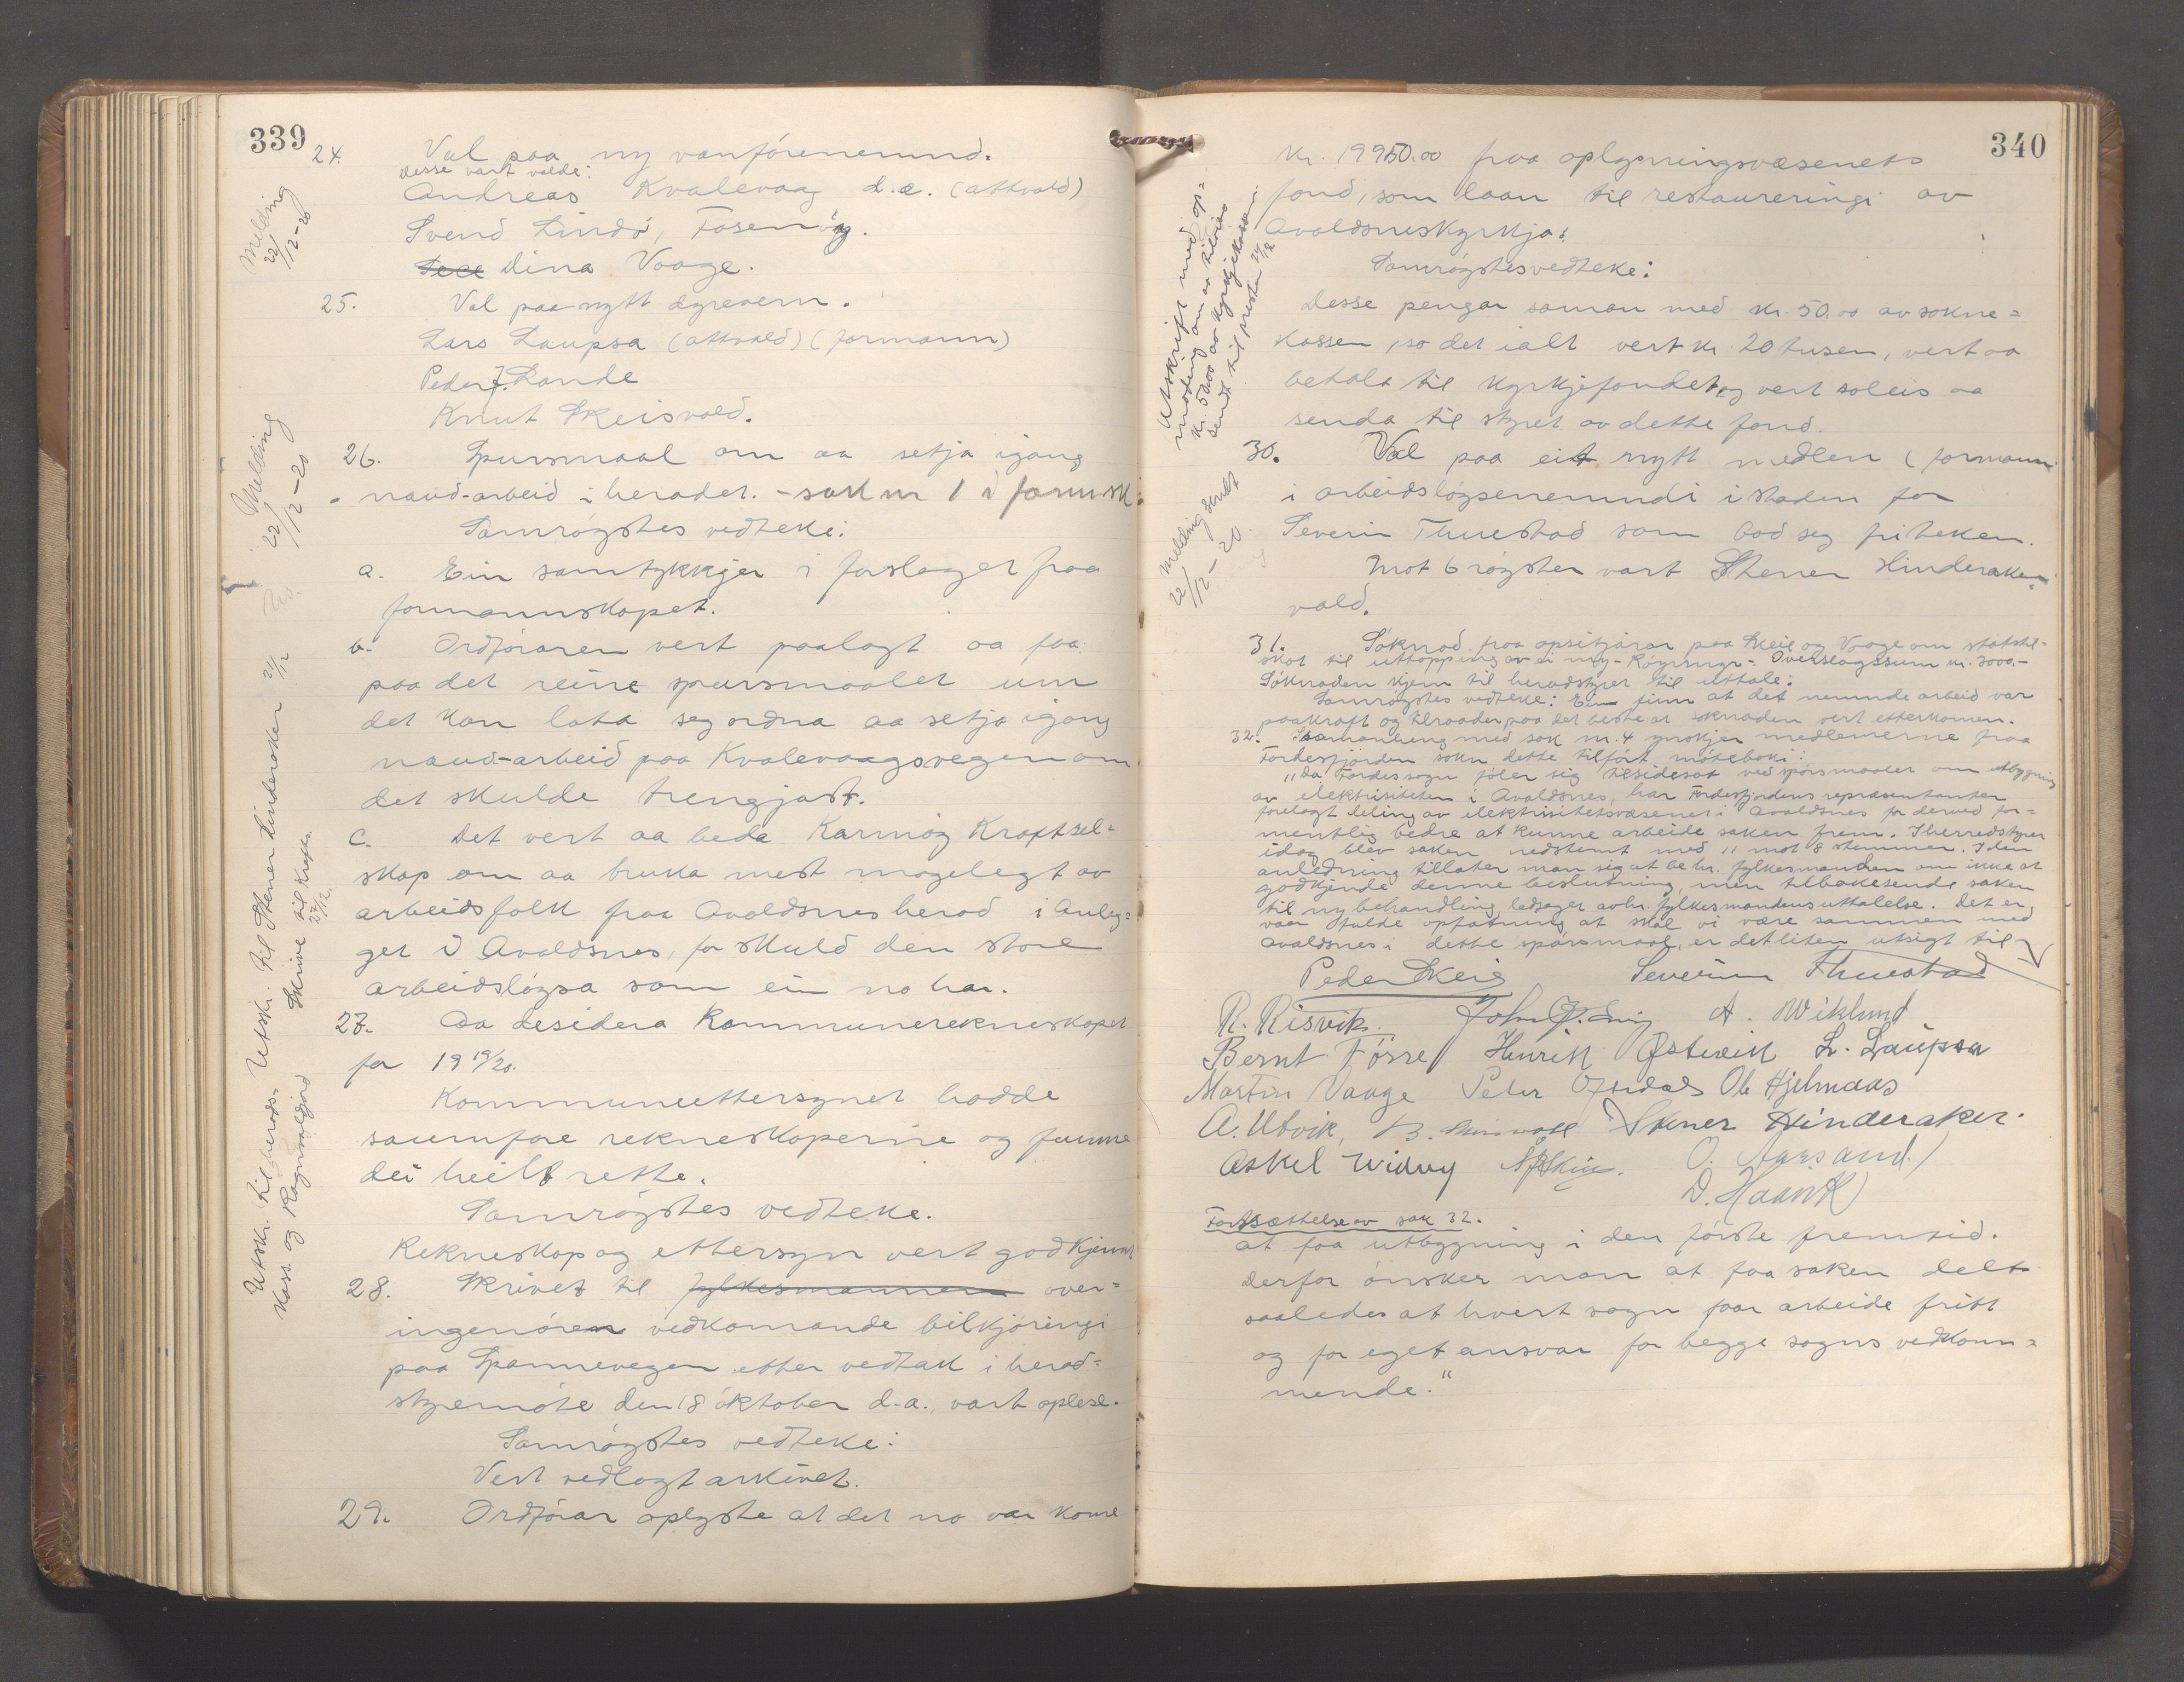 339
24. Val paa ny vanförenemnd.
Desse vart valde:
Andreas Kvalevaag d.e. (attvald)
Svend Lindö, Fosenöy.
Dina Vaage.
Melding 22/12-20
25. Val paa nytt dyrevern.
Lars Laupsa (attvald) (formann)
Peder J. Lande
Knut Skeisvold.
Melding 22/12-20
26. Spursmaal om aa setja igang
naud-arbeid i heradet. - sak nr 1 i formsk.
Samröystes vedteke:
a. Ein samtykkjer i forslaget fraa
formannskapet.
b. Ordföraren vert paalagt aa faa
paa det reine spursmaalet um
det kan lata seg ordna aa setja igang
naud-arbeid paa Kvalevaagsvegen om
det skulde trengjast.
c. Det vert aa beda Karmöy Kraftsel-
skap om aa bruka mest mogelegt av
arbeidsfolk fraa Avaldsnes herad i Anleg-
get i Avaldsnes, for skuld den store
arbeidslöysa som ein no har.
Utskr. til Stener Hinderaker 21/12
Skrive til Krafts. 27/12.
27. Aa desidera Kommunerekneskapet
for 19 19/20.
Kommuneettersynet hadde
saumfare rekneskaperne og funne
dei heilt rette.
Samröystes vedteke.
Rekneskap og ettersyn vert godkjennt
Utskr. til herads-
kass. og Ragnvaldjord
28. Skrivet til fylkesmannen over-
ingenören vedkomande bilkjöringi
paa Spannevegen etter vedtak i herad-
styremöte den 18 oktober d.a., vart oplese.
Samröystes vedteke:
Vert vedlagt arkivet.
29. Ordförar oplyste at det no var kome
340
kr. 19950.00 fraa oplysningsvæsenets
fond, som laan til restaureringi av
Avaldsneskyrkja.
Samröystesvedteke:
Desse pengar saman med kr. 50.00 av sokne-
kassen, so det ialt vert kr. 20 tusen, vert aa
betala til kyrkjefondet, og vert soleis aa
senda til styret av dette fond.
Utskrift med op-
moding om
kr. 5000.00 av kyrkjekassen
sendt til presten 21/12
30. Val paa eit nytt medlem (formann
i arbeidslöysenemndi i staden for
Severin Thuestad som bad seg friteken.
Mot 6 röyster vart Stener Hinderaker
vald.
Melding sendt
22/12-20.
31. Söknad fraa opsitjarar paa Skeie og Vaage om statstil-
skot til uttapping av ei myr - Röyrmyr - Overslagssum kr. 3000.-
Söknaden kjem til heradstyret til uttale:
Samröystes vedteke: Ein finn at det nemnde arbeid var
paakraft og tilraader paa det beste at söknaden vert etterkomen.
32. I samanheng med sak nr. 4 ynskjer medlemerne fraa
Fördesfjorden sokn dette tilfört möteboki:
"Da Fördes sogn föler sig tilsidesat ved spörsmaalet om utbygning
av elektrisiteten i Avaldsnes, har Fördesfjordens repræsentanter
forelagt deling av elektrisitetsvæsenet i Avaldsnes for derved for-
mentlig bedre at kunne arbeide saken frem. I herredstyret
idag blev saken nedstemt med 11 mot 8 stemmer. I den
anledning tillater man sig at be hr. fylkesmanden om ikke at
godkjende denne beslutning, men tilbakesende saken
til ny behandling, ledsaget av hr. fylkesmandens uttalelse. Det er
vaar fulde opfatning, at skal vi være sammen med
Avaldsnes i dette spörsmaal, er det liten utsigt til
Peder Skeie Severin Thuestad
R. Risvik. A. Wiklund
Bernt Förre Henrik Østevik L. Laupsa
Martin Vaage Peter Ole Hjelmaas
A. Utvik, Stener Hinderaker.
Askel Widvey O. Aarsand.
D. Haavik
Fortsættelse av sak 32.
at faa utbygning i den förste fremtid.
Derfor önsker man at faa saken delt
saaledes at hvert sogn faar arbeide fritt
og for eget ansvar for begge sogns vedkom-
mende."